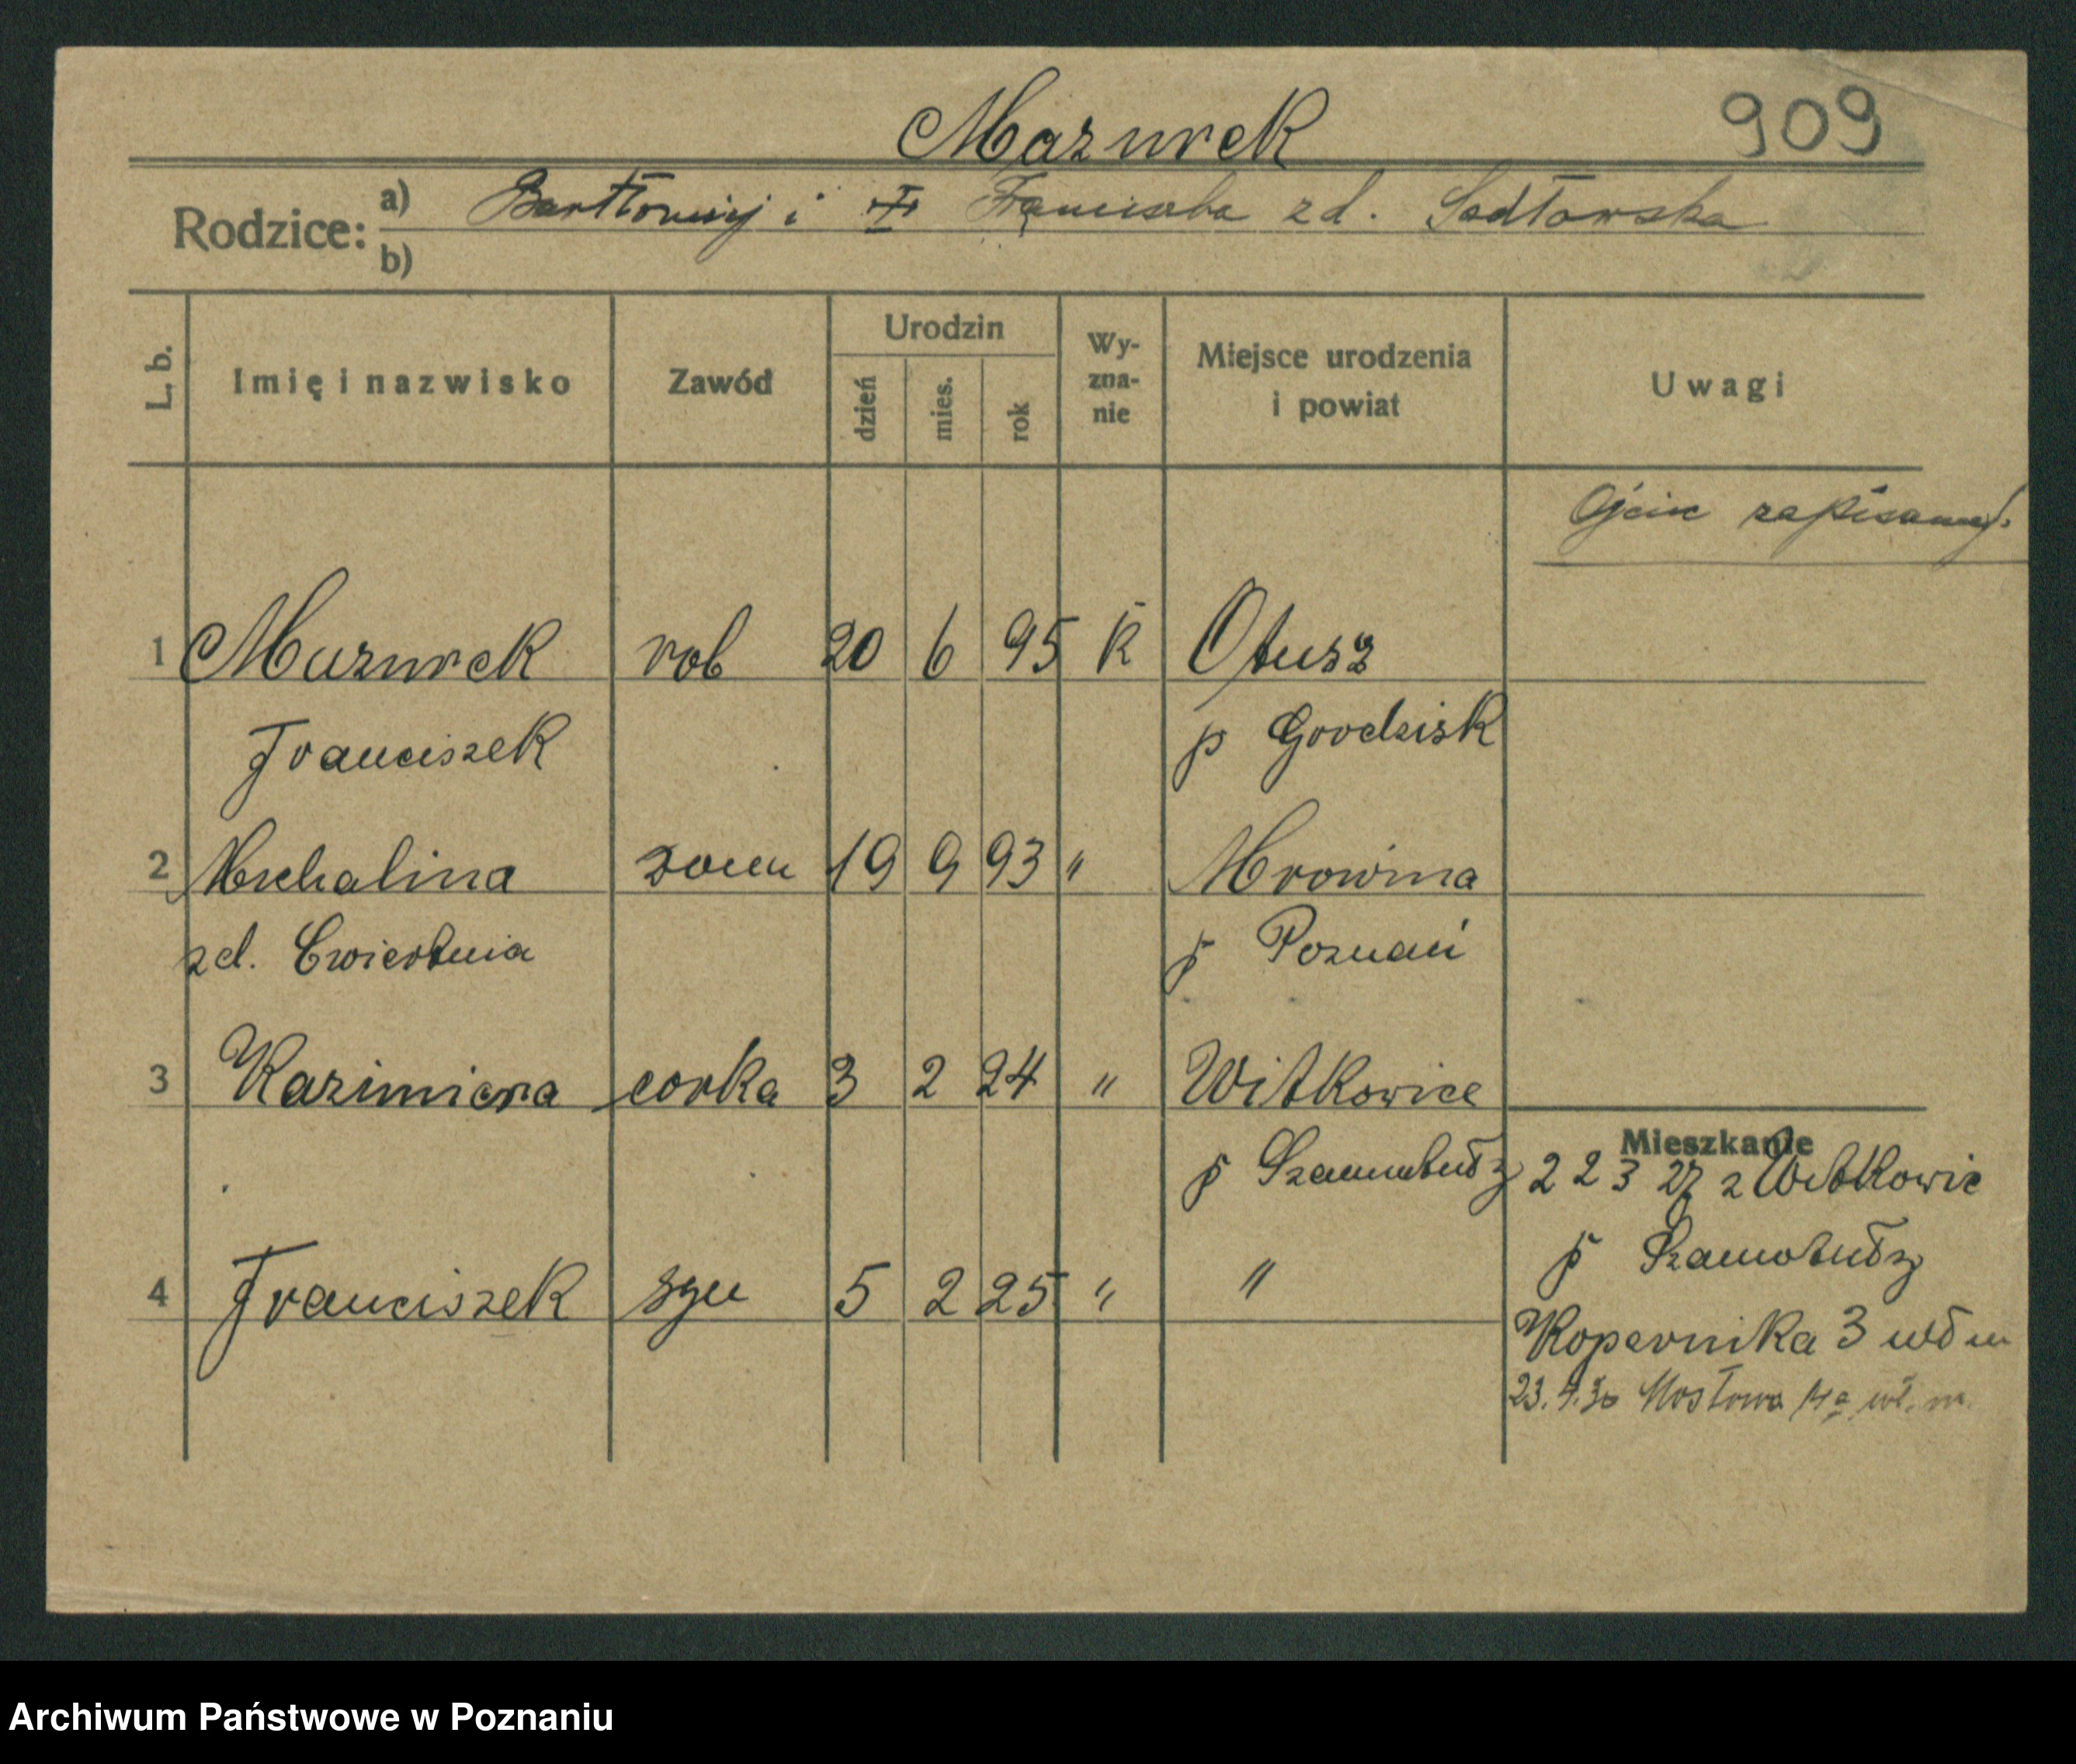 Mazurek 909
Rodzice: a) Bartłomiej i Franciszka zd. Sadłowska
b)
L. b. Imię i nazwisko Zawód Urodzin dzień mies. rok Wy-zna-nie Miejsce urodzenia i powiat Uwagi
Ojciec zapisany.
1 Mazurek rob 20 6 95 k Otusz
Franciszek p Grodzisk
2 Michalina żona 19 9 93 " Mrowina
zd. Cwiertnia p Poznań
3 Kazimiera corka 3 2 24 " Witkowice
Mieszkanie
p Szamotuły 22 3 27 z Witkowic
p Szamotuły
4 Franciszek syn 5 2 25 " "
Kopernika 3 wł m
23. 4. 30 Mostowa 14a wł. m.
Archiwum Państwowe w Poznaniu